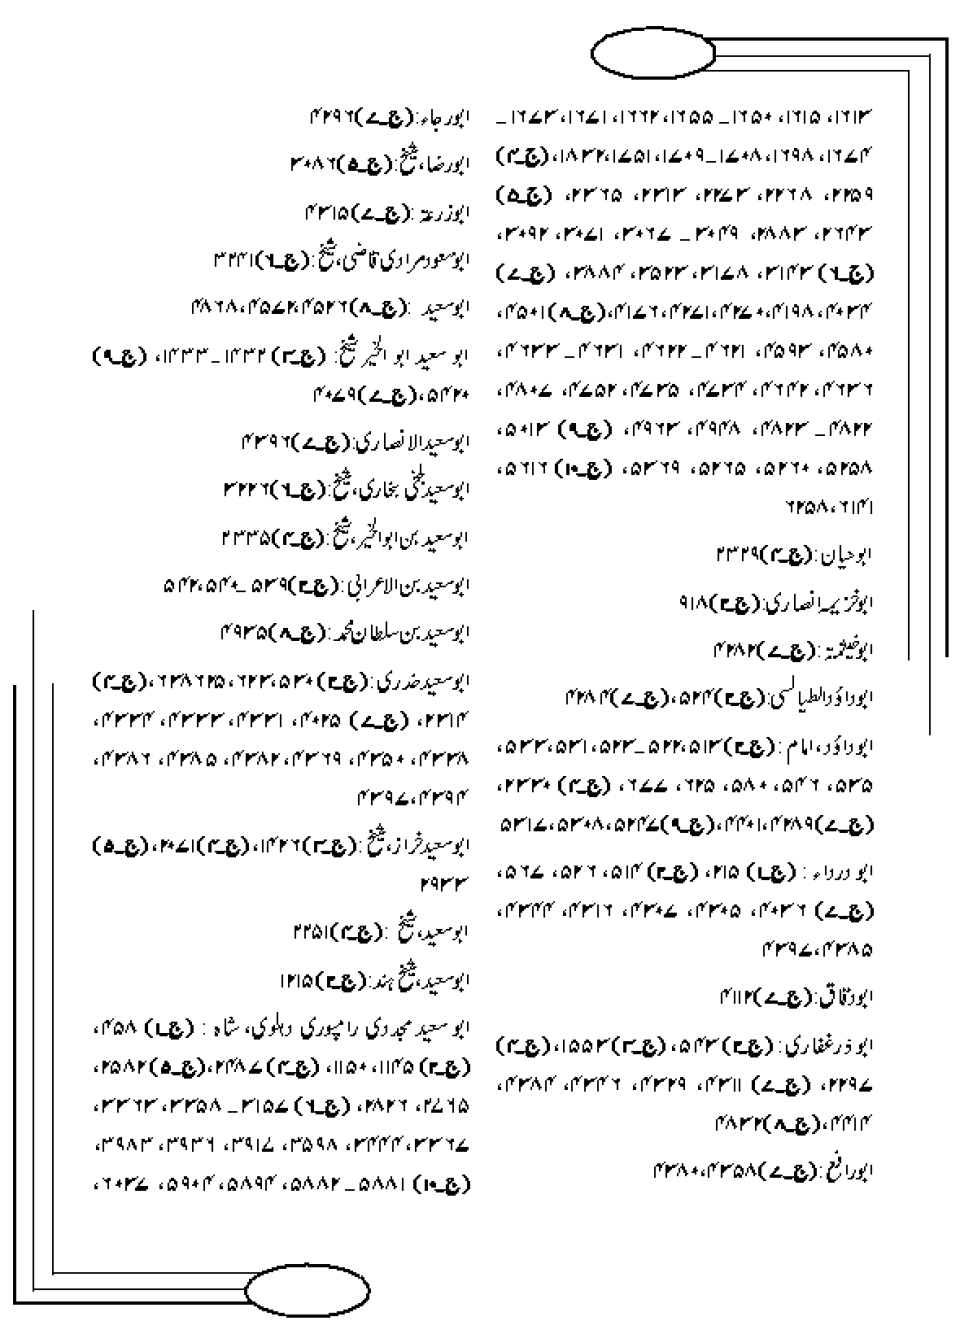 ۱۶۱۳، ۱۶۱۵، ۱۶۵۰۔ ۱۶۵۵، ۱۶۶۲، ۱۶۷۱، ۱۶۷۳۔
۱۶۷۴، ۱۶۹۸، ۱۷۰۸۔۱۷۰۹، ۱۷۵۱، ۱۸۳۲، (ج۔۴)
۲۲۵۹، ۲۲۶۸، ۲۲۷۳، ۲۳۱۳، ۲۳۶۵، (ج۔۵)
۲۶۴۳، ۲۸۸۳، ۳۰۴۹۔ ۳۰۶۷، ۳۰۷۱، ۳۰۹۲،
(ج۔۶) ۳۱۴۳، ۳۱۷۸، ۳۵۲۳، ۳۸۸۴، (ج۔۷)
۴۰۳۴، ۴۱۹۸، ۴۲۷۰، ۴۲۷۱، ۴۱۷۶، (ج۔۸) ۴۵۰۱،
۴۵۸۰، ۴۵۹۳، ۴۶۲۱۔ ۴۶۲۲، ۴۶۳۱۔ ۴۶۳۳،
۴۶۳۶، ۴۶۴۲، ۴۷۳۴، ۴۷۳۵، ۴۷۵۲، ۴۸۰۷،
۴۸۲۲۔ ۴۸۲۳، ۴۹۴۸، ۴۹۶۳، (ج۔۹) ۵۰۱۳،
۵۲۵۸، ۵۲۶۰، ۵۲۶۵، ۵۳۶۹، (ج۔۱۰) ۵۶۱۶،
۶۱۴۱، ۶۲۵۸
ابوحیان: (ج۔۴) ۲۳۲۹
ابوخزیمہ انصاری: (ج۔۲) ۹۱۸
ابوخیثمۃ: (ج۔۷) ۴۲۸۲
ابوداؤد الطیالسی: (ج۔۲) ۵۲۴، (ج۔۷) ۴۲۸۴
ابوداؤد، امام: (ج۔۲) ۵۱۳، ۵۲۲۔ ۵۲۳، ۵۳۱، ۵۳۳،
۵۳۵، ۵۴۶، ۵۸۰، ۶۲۵، ۶۷۷، (ج۔۴) ۲۳۳۰،
(ج۔۷) ۴۲۸۹، ۴۴۰۱، (ج۔۹) ۵۲۴۷، ۵۳۰۸، ۵۳۱۷
ابو درداء: (ج۔۱) ۲۱۵، (ج۔۲) ۵۱۴، ۵۲۶، ۵۶۷،
(ج۔۷) ۴۰۳۶، ۴۳۰۵، ۴۳۰۷، ۴۳۱۶، ۴۳۴۴،
۴۳۸۵، ۴۳۹۷
ابودقاق: (ج۔۷) ۴۱۱۲
ابوذر غفاری: (ج۔۲) ۵۴۳، (ج۔۳) ۱۵۵۳، (ج۔۴)
۲۲۹۷، (ج۔۷) ۴۳۱۱، ۴۳۲۹، ۴۳۴۶، ۴۳۸۴،
۴۴۱۴، (ج۔۸) ۴۸۳۲
ابورافع: (ج۔۷) ۴۳۵۸، ۴۳۸۰
ابورجاء: (ج۔۷) ۴۲۹۶
ابورضا، شیخ: (ج۔۵) ۳۰۸۶
ابوزرعۃ: (ج۔۷) ۴۳۱۵
ابوسعود مرادی قاضی، شیخ: (ج۔۶) ۳۲۴۱
ابوسعید: (ج۔۸) ۴۵۲۶، ۴۵۷۲، ۴۸۶۸
ابو سعید ابو الخیر شیخ: (ج۔۳) ۱۴۳۲۔ ۱۴۳۳، (ج۔۹)
۵۴۲۰، (ج۔۷) ۴۰۷۹
ابوسعید الانصاری: (ج۔۷) ۴۳۹۶
ابوسعید بلخی بخاری، شیخ: (ج۔۶) ۳۲۲۶
ابوسعید بن ابوالخیر، شیخ: (ج۔۴) ۲۳۳۵
ابوسعید بن الاعرابی: (ج۔۲) ۵۳۹۔ ۵۴۰، ۵۴۲
ابوسعید بن سلطان محمد: (ج۔۸) ۴۹۳۵
ابوسعید خدری: (ج۔۲) ۵۳۰، ۶۲۳، ۶۲۵ ۶۳۸، (ج۔۴)
۲۳۱۴، (ج۔۷) ۴۰۲۵، ۴۳۳۱، ۴۳۳۳، ۴۳۳۴،
۴۳۳۸، ۴۳۵۰، ۴۳۶۹، ۴۳۸۲، ۴۳۸۵، ۴۳۸۶،
۴۳۹۴، ۴۳۹۷
ابوسعید خراز، شیخ: (ج۔۳) ۱۴۲۶، (ج۔۴) ۲۰۷۱، (ج۔۵)
۲۹۳۳
ابوسعید، شیخ: (ج۔۴) ۲۲۵۱
ابوسعید، شیخ ہند: (ج۔۲) ۱۲۱۵
ابو سعید مجددی رامپوری دہلوی، شاہ: (ج۔۱) ۴۵۸،
(ج۔۲) ۱۱۴۵، ۱۱۵۰، (ج۔۴) ۲۴۸۷، (ج۔۵) ۲۵۸۲،
۲۷۶۵، ۲۸۲۶، (ج۔۶) ۳۱۵۷۔ ۳۳۵۸، ۳۳۶۳،
۳۳۶۷، ۳۴۴۴، ۳۵۹۸، ۳۹۱۷، ۳۹۳۶، ۳۹۸۳،
(ج۔۱۰) ۵۸۸۱۔ ۵۸۸۲، ۵۸۹۴، ۵۹۰۴، ۶۰۳۷،